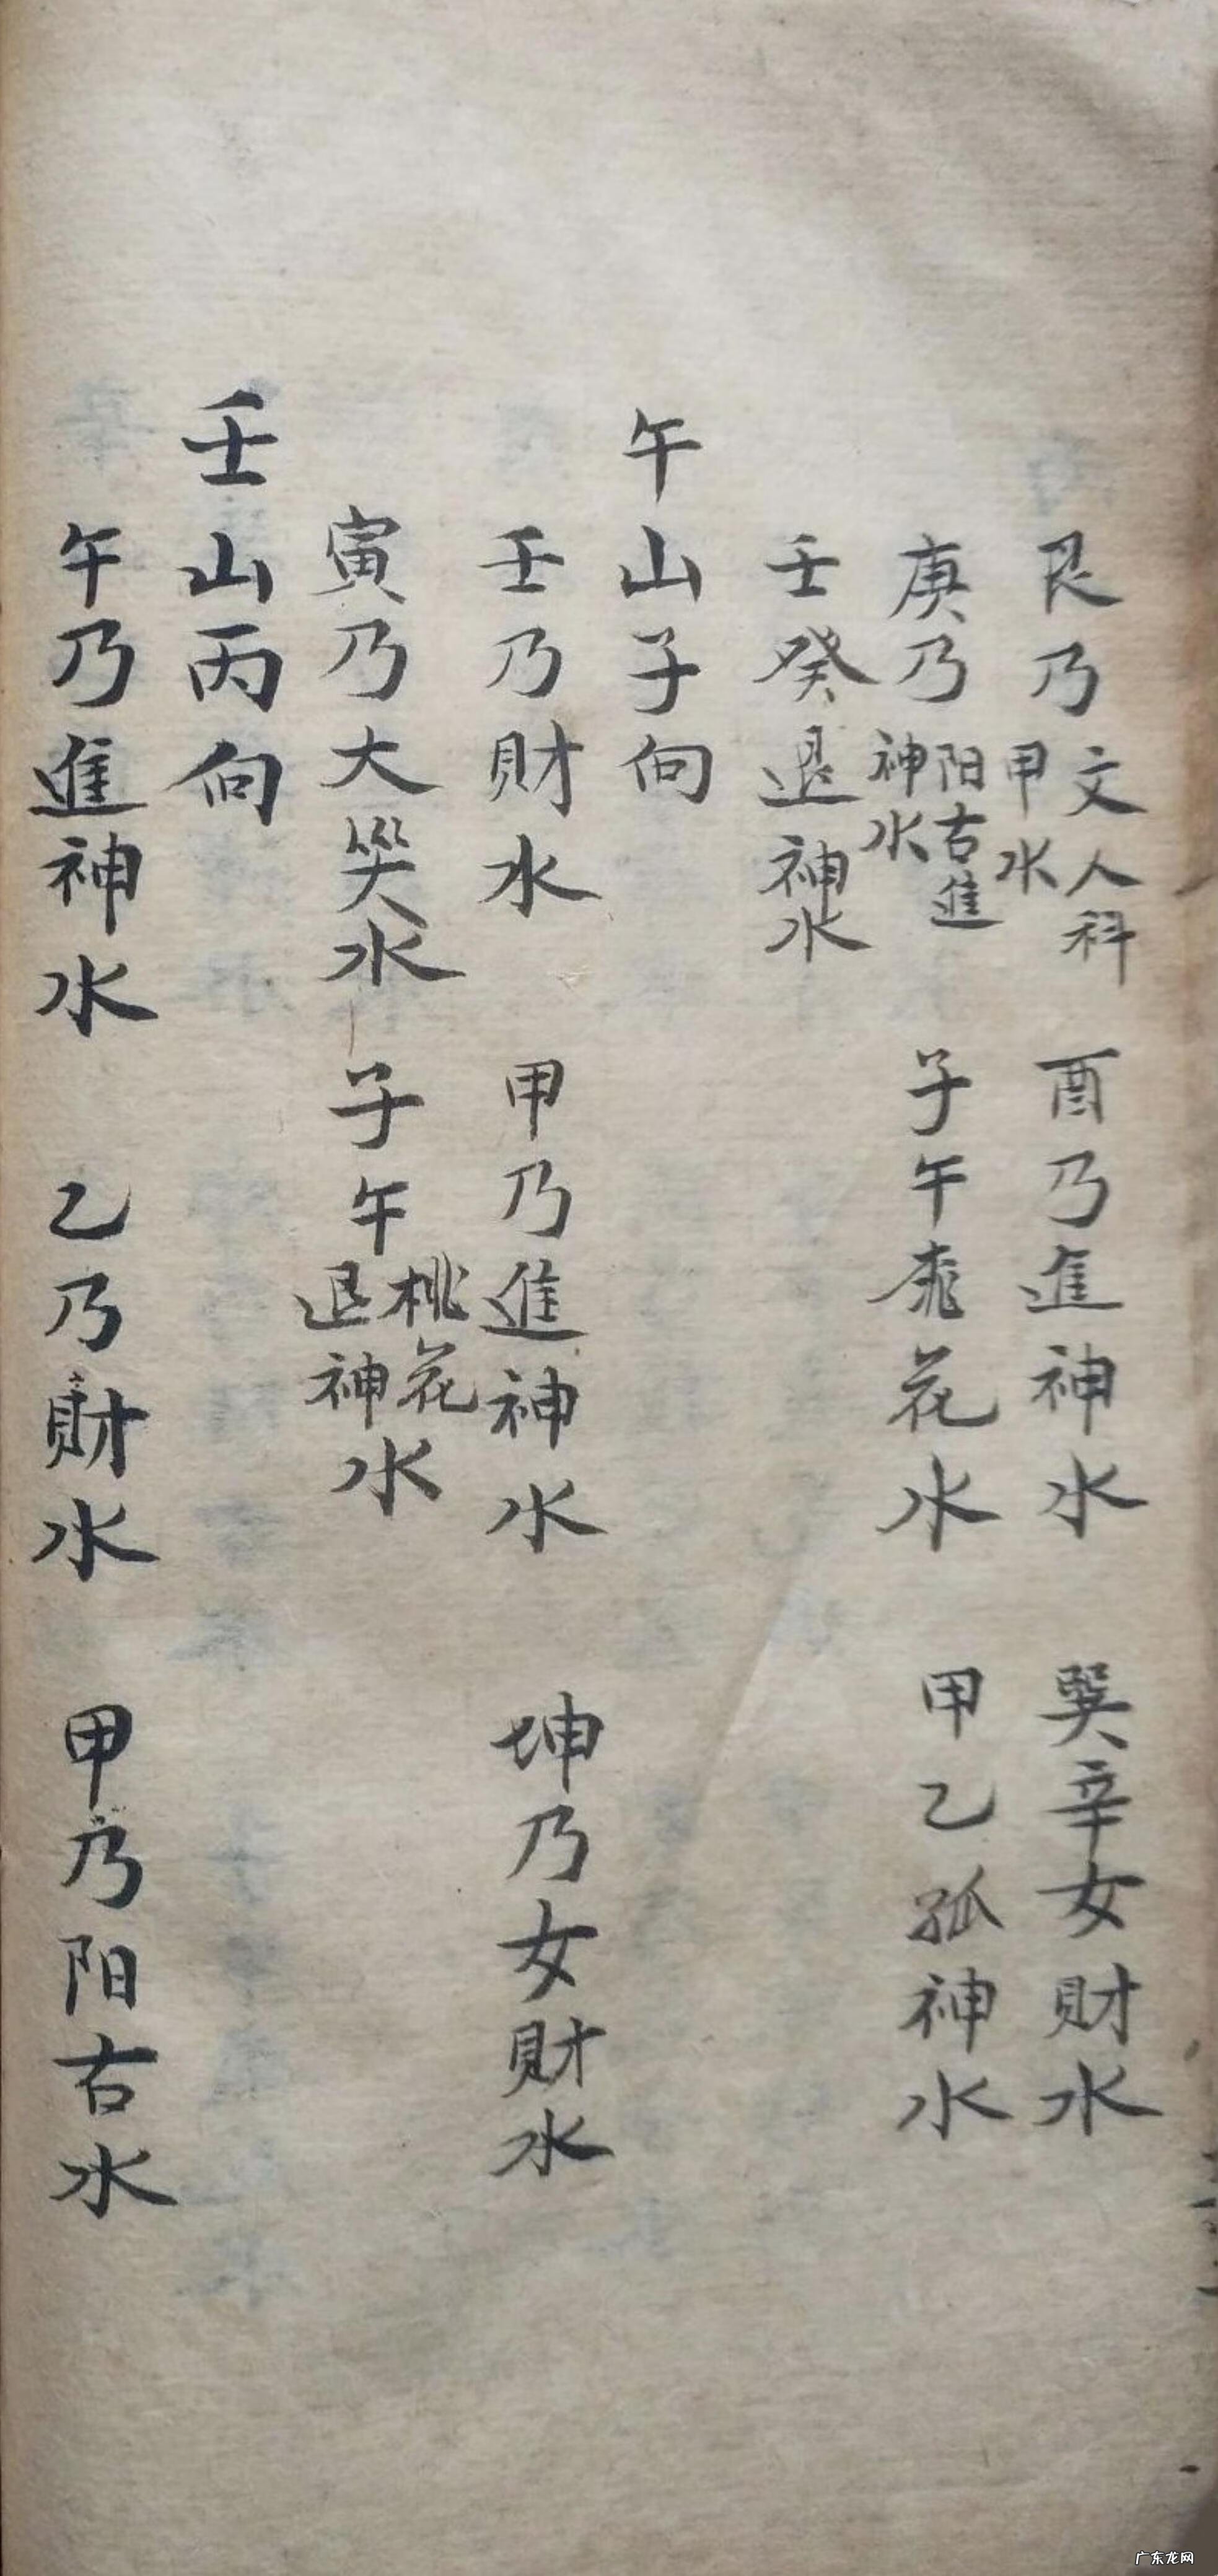 艮乃文人科甲水 酉乃進神水 巽辛女财水
庚乃阳古進神水 子午桃花水 甲乙孤神水
壬癸退神水
午山子向
壬乃財水 甲乃進神水 坤乃女財水
寅乃大哭水 子午桃花退神水
壬山丙向
午乃進神水 乙乃財水 甲乃阳古水
广东龙网